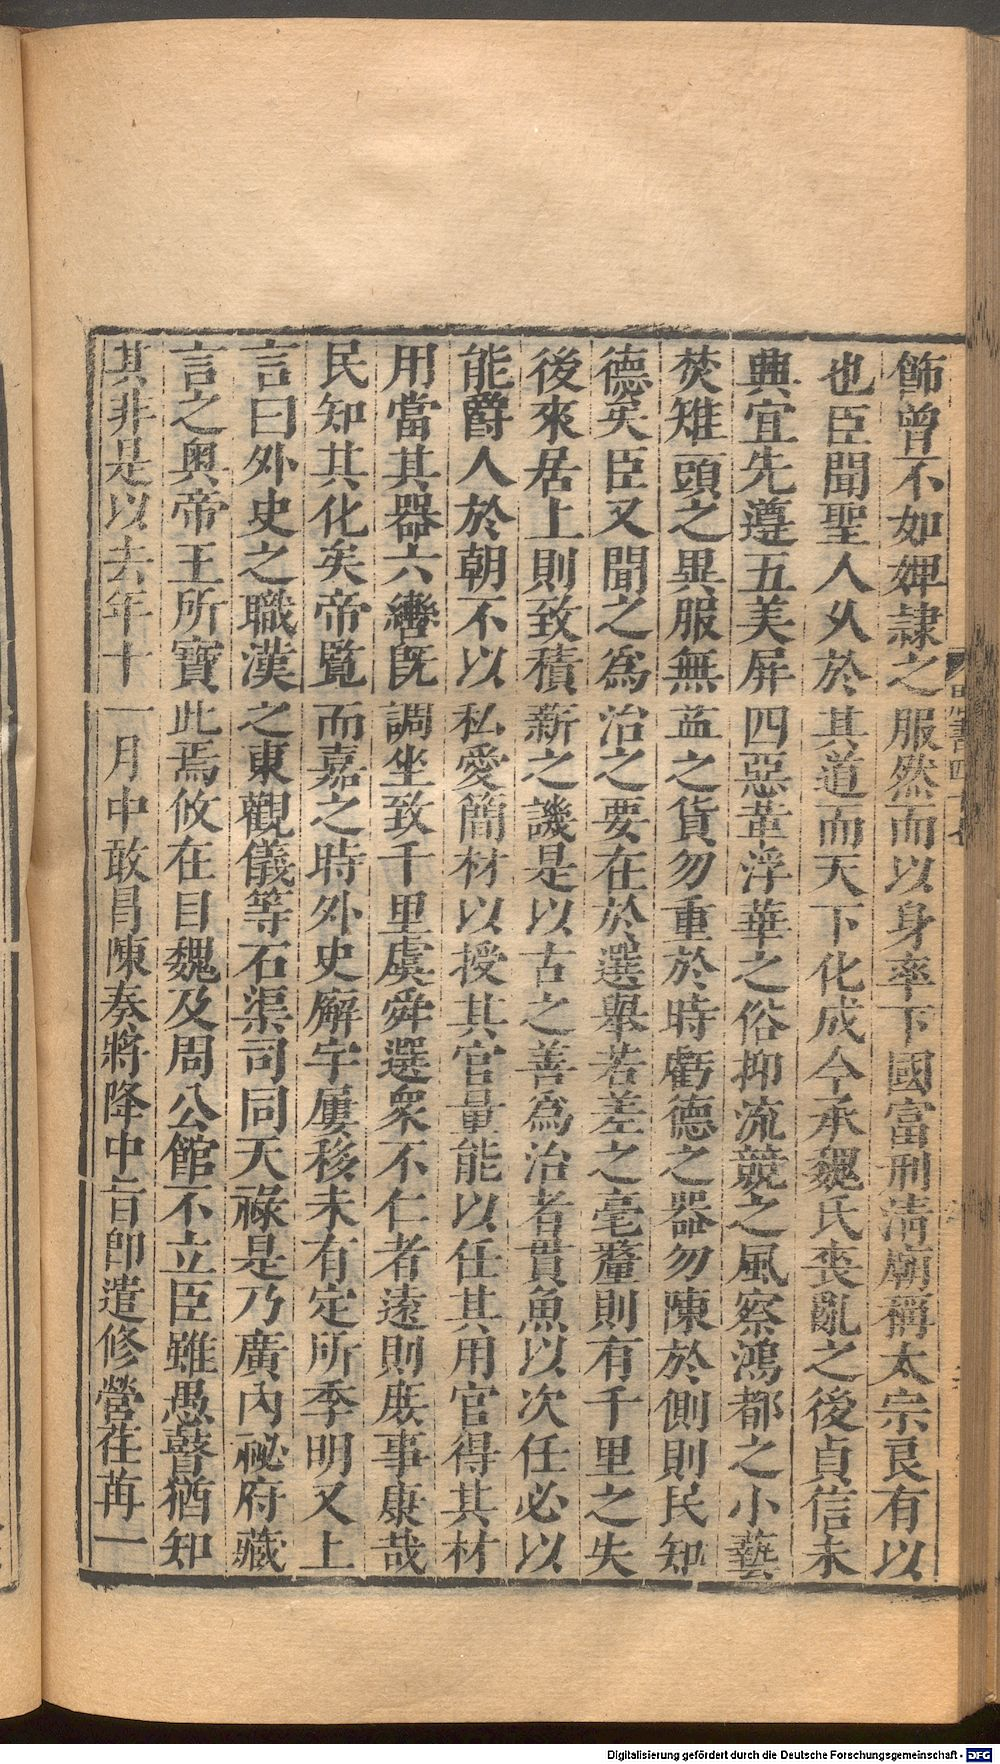 飾曾不如婢隷之服然而以身率下國富刑淸廟稱太宗良有以
也臣聞聖人乆於其道而天下化成今承魏氏喪亂之後貞信未
興宜先遵五美屏四惡革浮華之俗抑流競之風察鴻都之小藝
焚雉頭之異服無益之貨勿重於時虧德之器勿陳於側則民知
德矣臣又聞之爲治之要在於選舉若差之毫釐則有千里之失
後來居上則致積薪之譏是以古之善爲治者貫魚以次任必以
能爵人於朝不以私愛簡材以授其官量能以任其用官得其材
用當其器六轡旣調坐致千里虞舜選衆不仁者遠則庶事康哉
民知其化矣帝覧而嘉之時外史廨宇屢移未有定所季明又上
言曰外史之職漢之東觀儀等石渠司同天祿是乃廣內祕府藏
言之奥帝王所寶此焉攸在自魏及周公館不立臣雖愚瞽猶知
其非是以去年十一月中敢昌陳奏將降中旨卽遣修營荏苒一
Digitalisierung gefördert durch die Deutsche Forschungsgemeinschaft - DFG